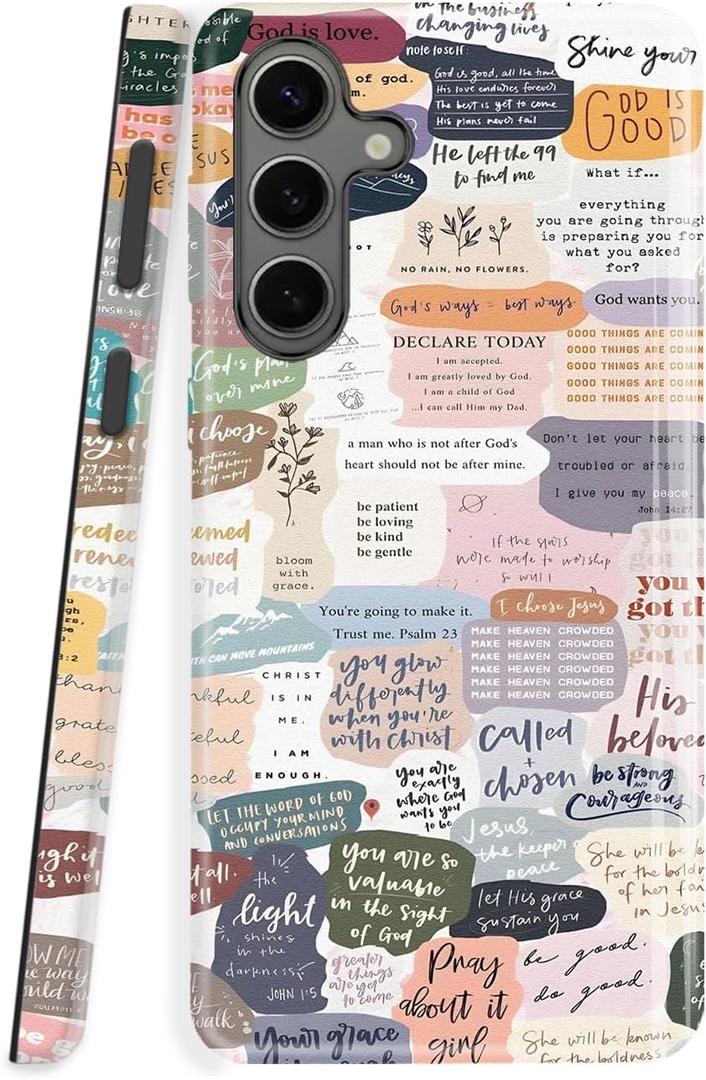 God is love.
in the business
changing lives
note to self:
God is good, all the time
His love endures forever
The best is yet to come
His plans never fail
Shine your
GOD IS
GOOD
of god.
He left the 99
to find me
What if...
everything
you are going through
is preparing you for
what you asked
for?
NO RAIN, NO FLOWERS.
God's ways = best ways
God wants you.
DECLARE TODAY
I am accepted.
I am greatly loved by God.
I am a child of God
...I can call Him my Dad.
GOOD THINGS ARE COMIN
GOOD THINGS ARE COMIN
GOOD THINGS ARE COMIN
GOOD THINGS ARE COMIN
GOOD THINGS ARE COMIN
God's plan
over mine
i choose
a man who is not after God's
heart should not be after mine.
Don't let your heart be
troubled or afraid.
I give you my peace.
John 14:27
be patient
be loving
be kind
be gentle
bloom
with
grace.
If the stars
were made to worship
so will I
you
got th
you v
got th
you
got th
You're going to make it.
Trust me. Psalm 23
I choose Jesus
MAKE HEAVEN CROWDED
MAKE HEAVEN CROWDED
MAKE HEAVEN CROWDED
MAKE HEAVEN CROWDED
MAKE HEAVEN CROWDED
CAN MOVE MOUNTAINS
CHRIST
IS IN
ME.
I AM
ENOUGH.
you glow
differently
when you're
with Christ
His
beloved
called
+
chosen
be strong
AND
Courageous
you are
exactly
where God
wants you
to be
LET THE WORD OF GOD
OCCUPY YOUR MIND
AND CONVERSATIONS
Jesus,
the keeper
peace
you are so
valuable
in the sight
of God
She will be k
for the boldn
of her fai
in Jesus
let His grace
sustain you
the
light
shines
in the
darkness
JOHN 1:5
greater
things
are yet
to come
Pray
about it
girl
be good.
do good.
walk
Your grace
She will be known
for the boldness